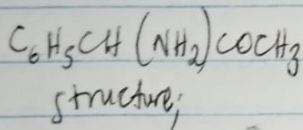 C₆H₅CH(NH₂)COCH₃
structure;